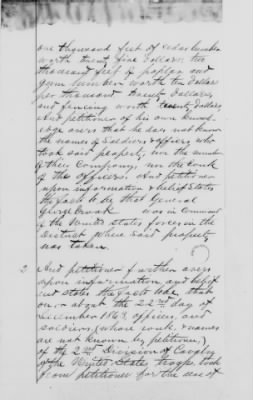 one thousand feet of cedar lumber
worth twenty five dollars two
thousand feet of poplar and
gum lumber worth ten dollars
per thousand twenty dollars
and fencing worth twenty dollars
And petitioner of his own knowl-
edge avers that he does not know
the names of soldiers & officers who
took said property, nor the number
of their Company, nor the rank
of the officers. And petitioner
upon information & belief states
the facts to be that General
George Crook was in command
of the United States forces in the
District where said property
was taken.
2 And petitioner further avers
upon information and belief
and states the facts to be that
on or about the 22nd day of
December 1863, officers and
soldiers, (whose rank & names
are not known by petitioner,)
of the 2nd Division of Cavalry
of the United States troops took
from petitioner for the use of